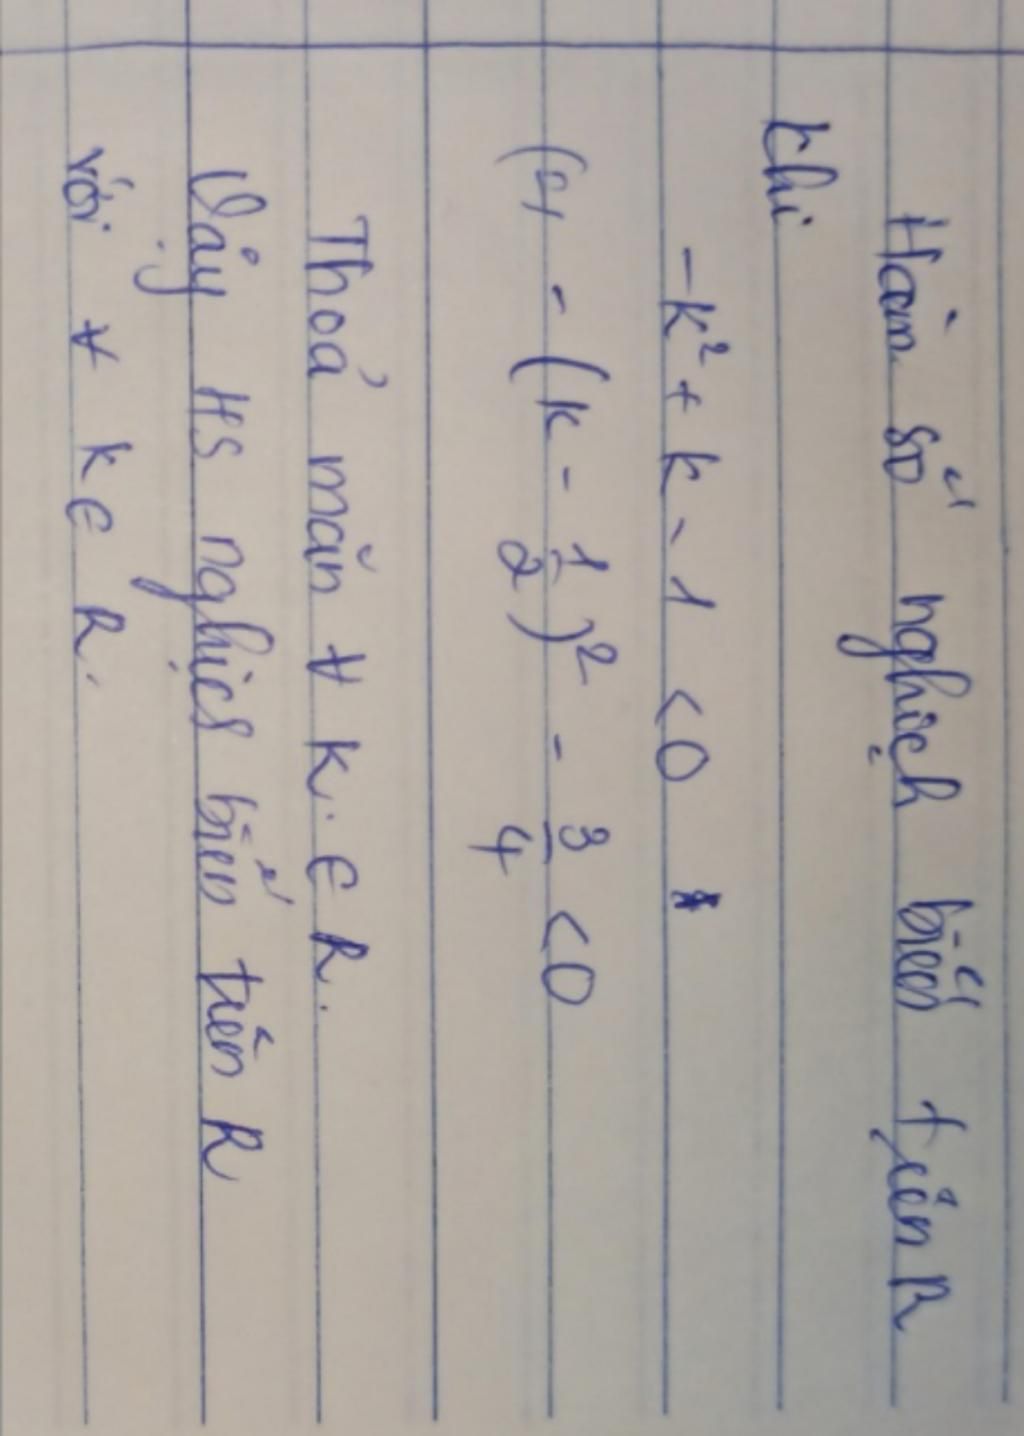 Hàm số nghịch biến trên R
khi
-k² + k - 1 < 0
(=) - (k - 1/2)² - 3/4 < 0
Thoả mãn ∀ k ∈ R.
Vậy HS nghịch biến trên R
với ∀ k ∈ R.